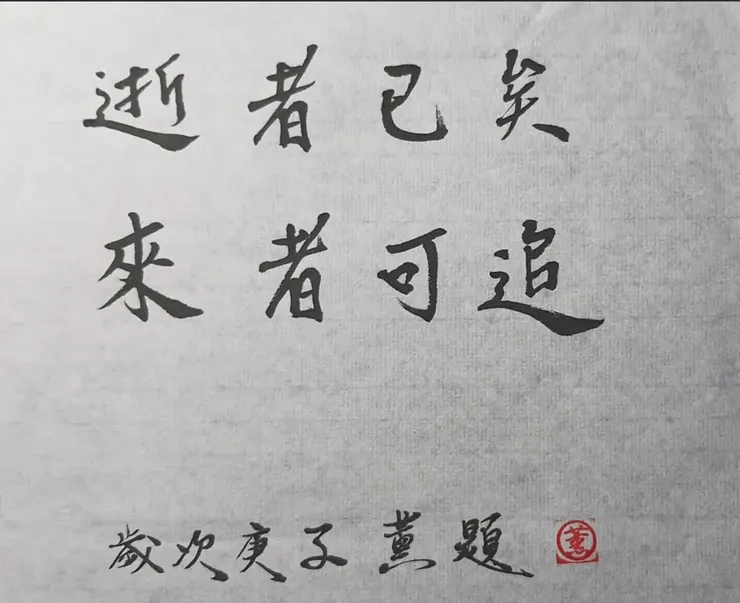 逝者已矣
來者可追
歲次庚子薰題
薰